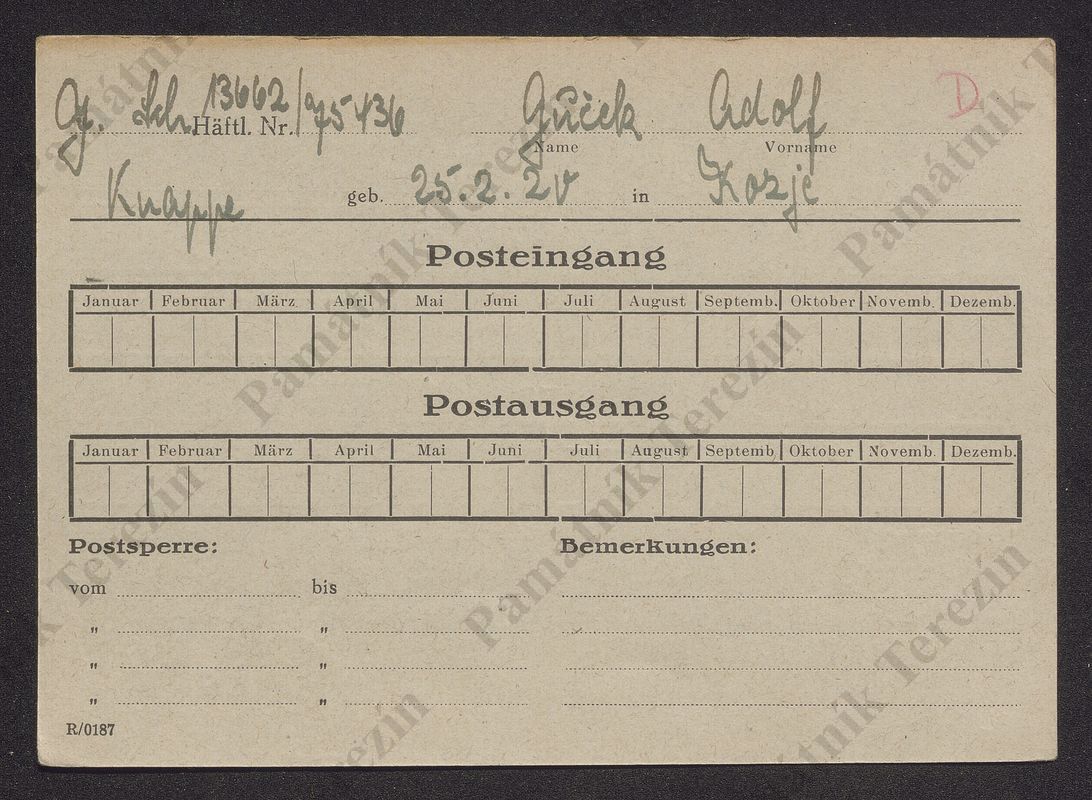 13662/75436 Gúček Adolf D
Häftl. Nr. Name Vorname
Knappe geb. 25.2.20 in Kozje
Posteingang
Januar Februar März April Mai Juni Juli August Septemb. Oktober Novemb. Dezemb.
Postausgang
Januar Februar März April Mai Juni Juli August Septemb. Oktober Novemb. Dezemb.
Postsperre: Bemerkungen:
vom bis
" "
" "
" "
R/0187
Památník Terezín